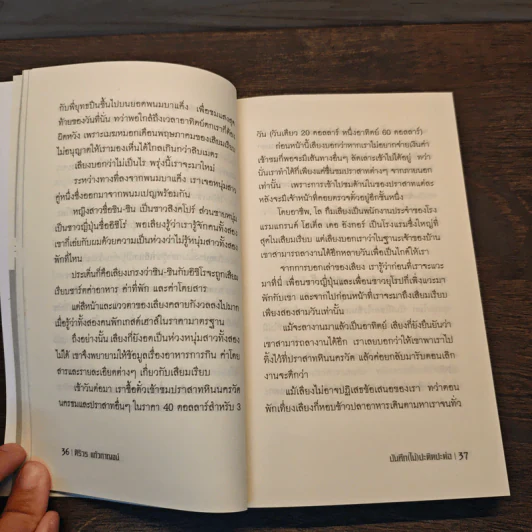 กับพี่ยุทธปีนขึ้นไปบนยอดพนมบาแค็ง เพื่อชมแสงสุด
ท้ายของวันที่นั่น ทว่าพอใกล้ถึงเวลาอาทิตย์ตกเราก็ต้อง
ผิดหวัง เพราะเมฆหมอกเดือนพฤษภาคมของเสียมเรียบ
ไม่อนุญาตให้เรามองเห็นได้ไกลเกินกว่าสิบเมตร
เสียงบอกว่าไม่เป็นไร พรุ่งนี้เราจะมาใหม่
ระหว่างทางที่ลงจากพนมบาแค็ง เราเจอหนุ่มสาว
คู่หนึ่งซึ่งออกมาจากพนมเปญพร้อมกัน
หญิงสาวชื่อชิน-ชิน เป็นชาวสิงคโปร์ ส่วนชายหนุ่ม
เป็นชาวญี่ปุ่นชื่ออิชิโร่ พอเสียงรู้ว่าเรารู้จักคนทั้งสอง
เขาก็เอ่ยกับผมด้วยความเป็นห่วงว่าไม่รู้หนุ่มสาวทั้งสอง
พักที่ไหน
ประเด็นก็คือเสียงเกรงว่าชิน-ชินกับอิชิโร่จะถูกเสียม
เรียบชาร์คค่าอาหาร ค่าที่พัก และค่าโดยสาร
แต่สีหน้าและแววตาของเสียงคลายกังวลลงไปมาก
เมื่อรู้ว่าทั้งสองคนพักเกสต์เฮาส์ในราคามาตรฐาน
ถึงอย่างนั้น เสียงก็ยังอดเป็นห่วงหนุ่มสาวทั้งสอง
ไม่ได้ เขาจึงพยายามให้ข้อมูลเรื่องอาหารการกิน ค่าโดย
สารและรายละเอียดต่างๆ เกี่ยวกับเสียมเรียบ
เช้าวันต่อมา เราซื้อตั๋วเข้าชมปราสาทหินนครวัด
นครธมและปราสาทอื่นๆ ในราคา 40 ดอลลาร์สำหรับ 3
36 | ศิริวร แก้วกาญจน์
วัน (วันเดียว 20 ดอลลาร์ หนึ่งอาทิตย์ 60 ดอลลาร์)
ก่อนหน้านี้เสียงบอกว่าหากเราไม่อยากจ่ายเงินค่า
เข้าชมก็พอจะมีเส้นทางอื่นๆ ลัดเลาะเข้าไปได้อยู่ ทว่า
นั่นเราทำได้ก็เพียงแค่ชื่นชมปราสาทต่างๆ จากภายนอก
เท่านั้น เพราะการเข้าไปชมด้านในของปราสาทแต่ละ
หลังจะมีเจ้าหน้าที่คอยตรวจตั๋วอยู่อีกชั้นหนึ่ง
โดยอาชีพ, โล ทึมเสียงเป็นพนักงานประจำของโรง
แรมแกรนด์ โฮเต็ล เดอ อังกอร์ เป็นโรงแรมซึ่งใหญ่ที่
สุดในเสียมเรียบ แต่เสียงบอกเราว่าในฐานะเจ้าของบ้าน
เขาสามารถลางานได้อีกหลายวันเพื่อเป็นไกด์ให้เรา
จากการบอกเล่าของเสียง เรารู้ว่าก่อนที่เราจะแวะ
มาที่นี่ เพื่อนชาวญี่ปุ่นและเพื่อนชาวยุโรปก็เพิ่งแวะมา
พักกับเขา และจากไปก่อนหน้าที่เราจะมาถึงเสียมเรียบ
เพียงสองสามวันเท่านั้น
แม้จะลางานมาแล้วเป็นอาทิตย์ เสียงก็ยังยืนยันว่า
เขาสามารถลางานได้อีก เราเลยบอกว่าให้เขาพาเราไป
ทิ้งไว้ที่ปราสาทหินนครวัด แล้วค่อยกลับมารับตอนเลิก
งานจะดีกว่า
แม้เสียงไม่อาจปฏิเสธข้อเสนอของเรา ทว่าตอน
พักเที่ยงเสียงก็หอบข้าวปลาอาหารเดินตามหาเราจนทั่ว
บันทึก(ไม่)ปะติดปะต่อ | 37